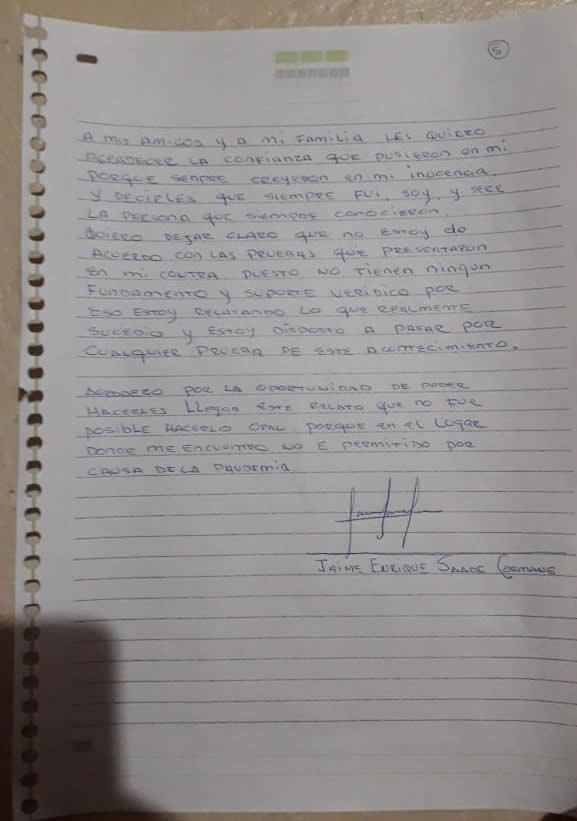 5
A mis amigos y a mi familia les quiero
agradecer la confianza que pusieron en mi
porque senpre creyeron en mi inocencia.
y decirles que siempre fui, soy, y sere
la persona que siempre conocieron.
quiero dejar claro que no estoy de
acuerdo con las pruebas que presentaron
en mi contra puesto no tienen ningun
fundamento y suporte verídico por
eso estoy relatando lo que realmente
sucedio y estoy disposto a pasar por
cualquier prueba de este acontecimiento.
por la oportunidad de poder
hacerles llegar este relato que no fue
posible hacerlo oral porque en el lugar
donde me encuentro no e permitido por
causa de la pandemia
Jaime Enrique Saade Cormane